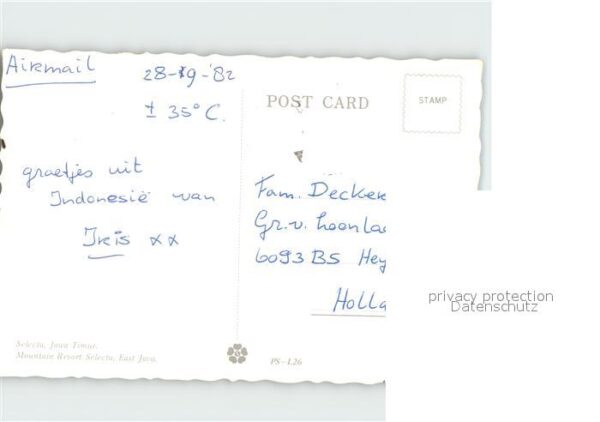 Airmail
28-9-'82
± 35° C.
POST CARD
STAMP
groetjes uit
Indonesië van
Iris xx
Fam. Decker
Gr. v. Loonla
6093 BS Hey
Holla
privacy protection
Datenschutz
Selecta, Jawa Timur.
Mountain Resort Selecta, East Java.
PS-L26